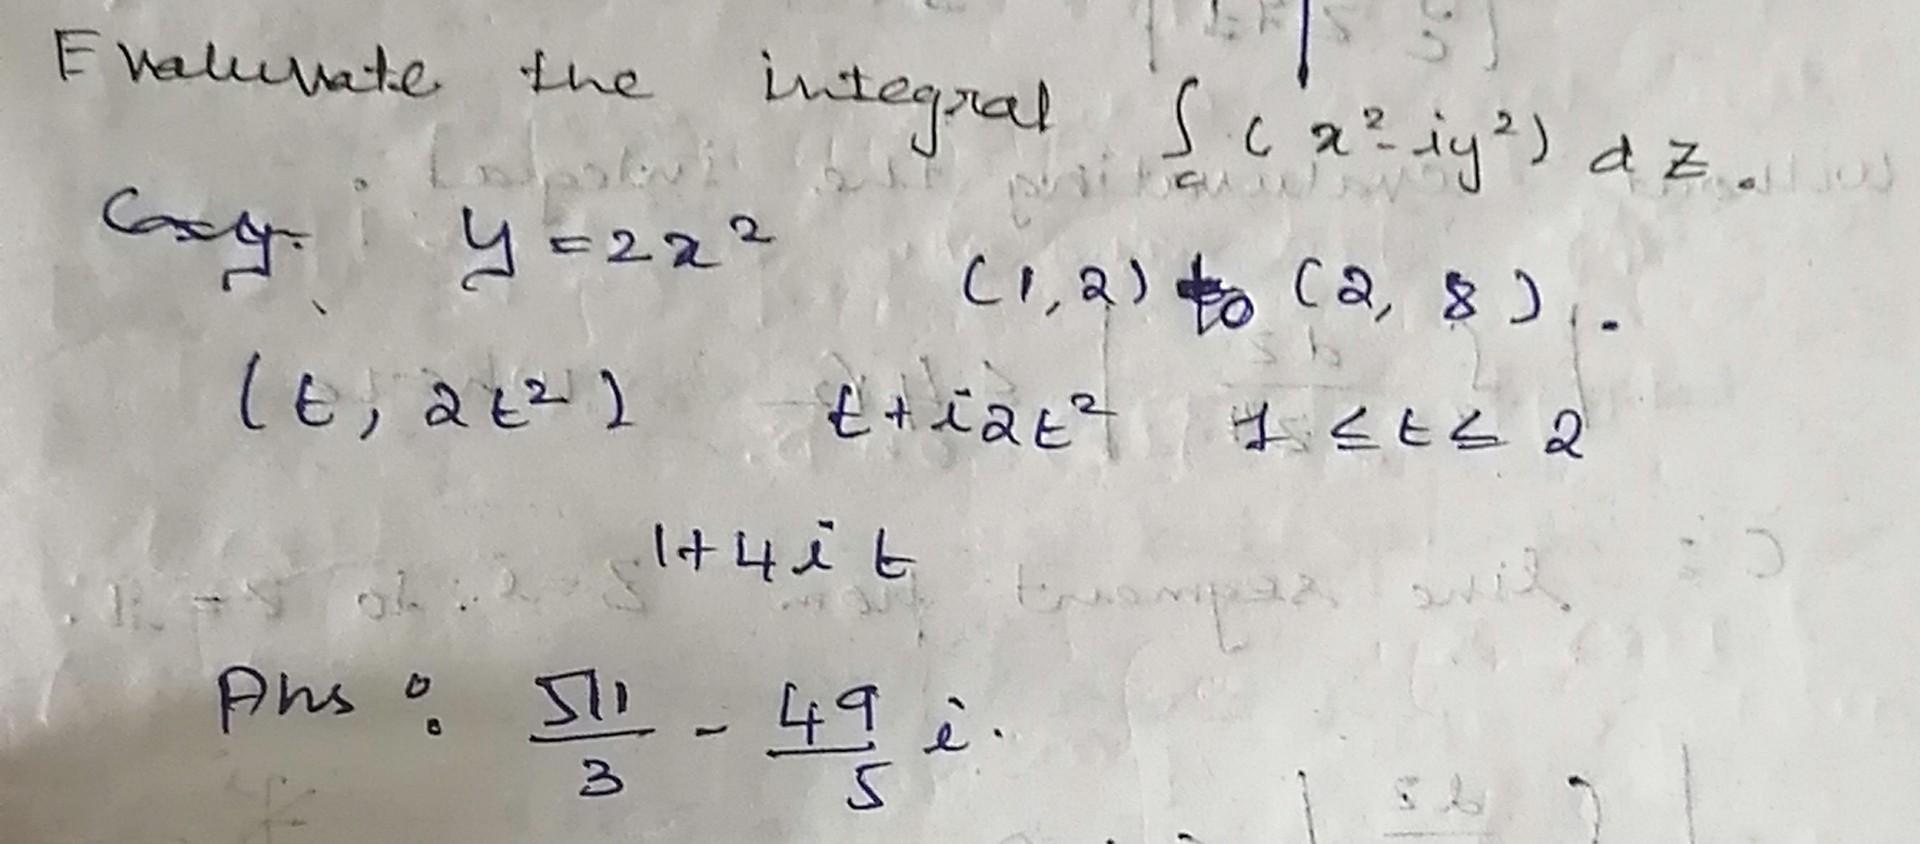 Evaluvate the integral ∫c (x² - iy²) dz.
y = 2x² (1,2) to (2, 8).
(t, 2t²) t+i2t² 1 ≤ t ≤ 2
1+4it
Ans: 511/3 - 49/5 i.